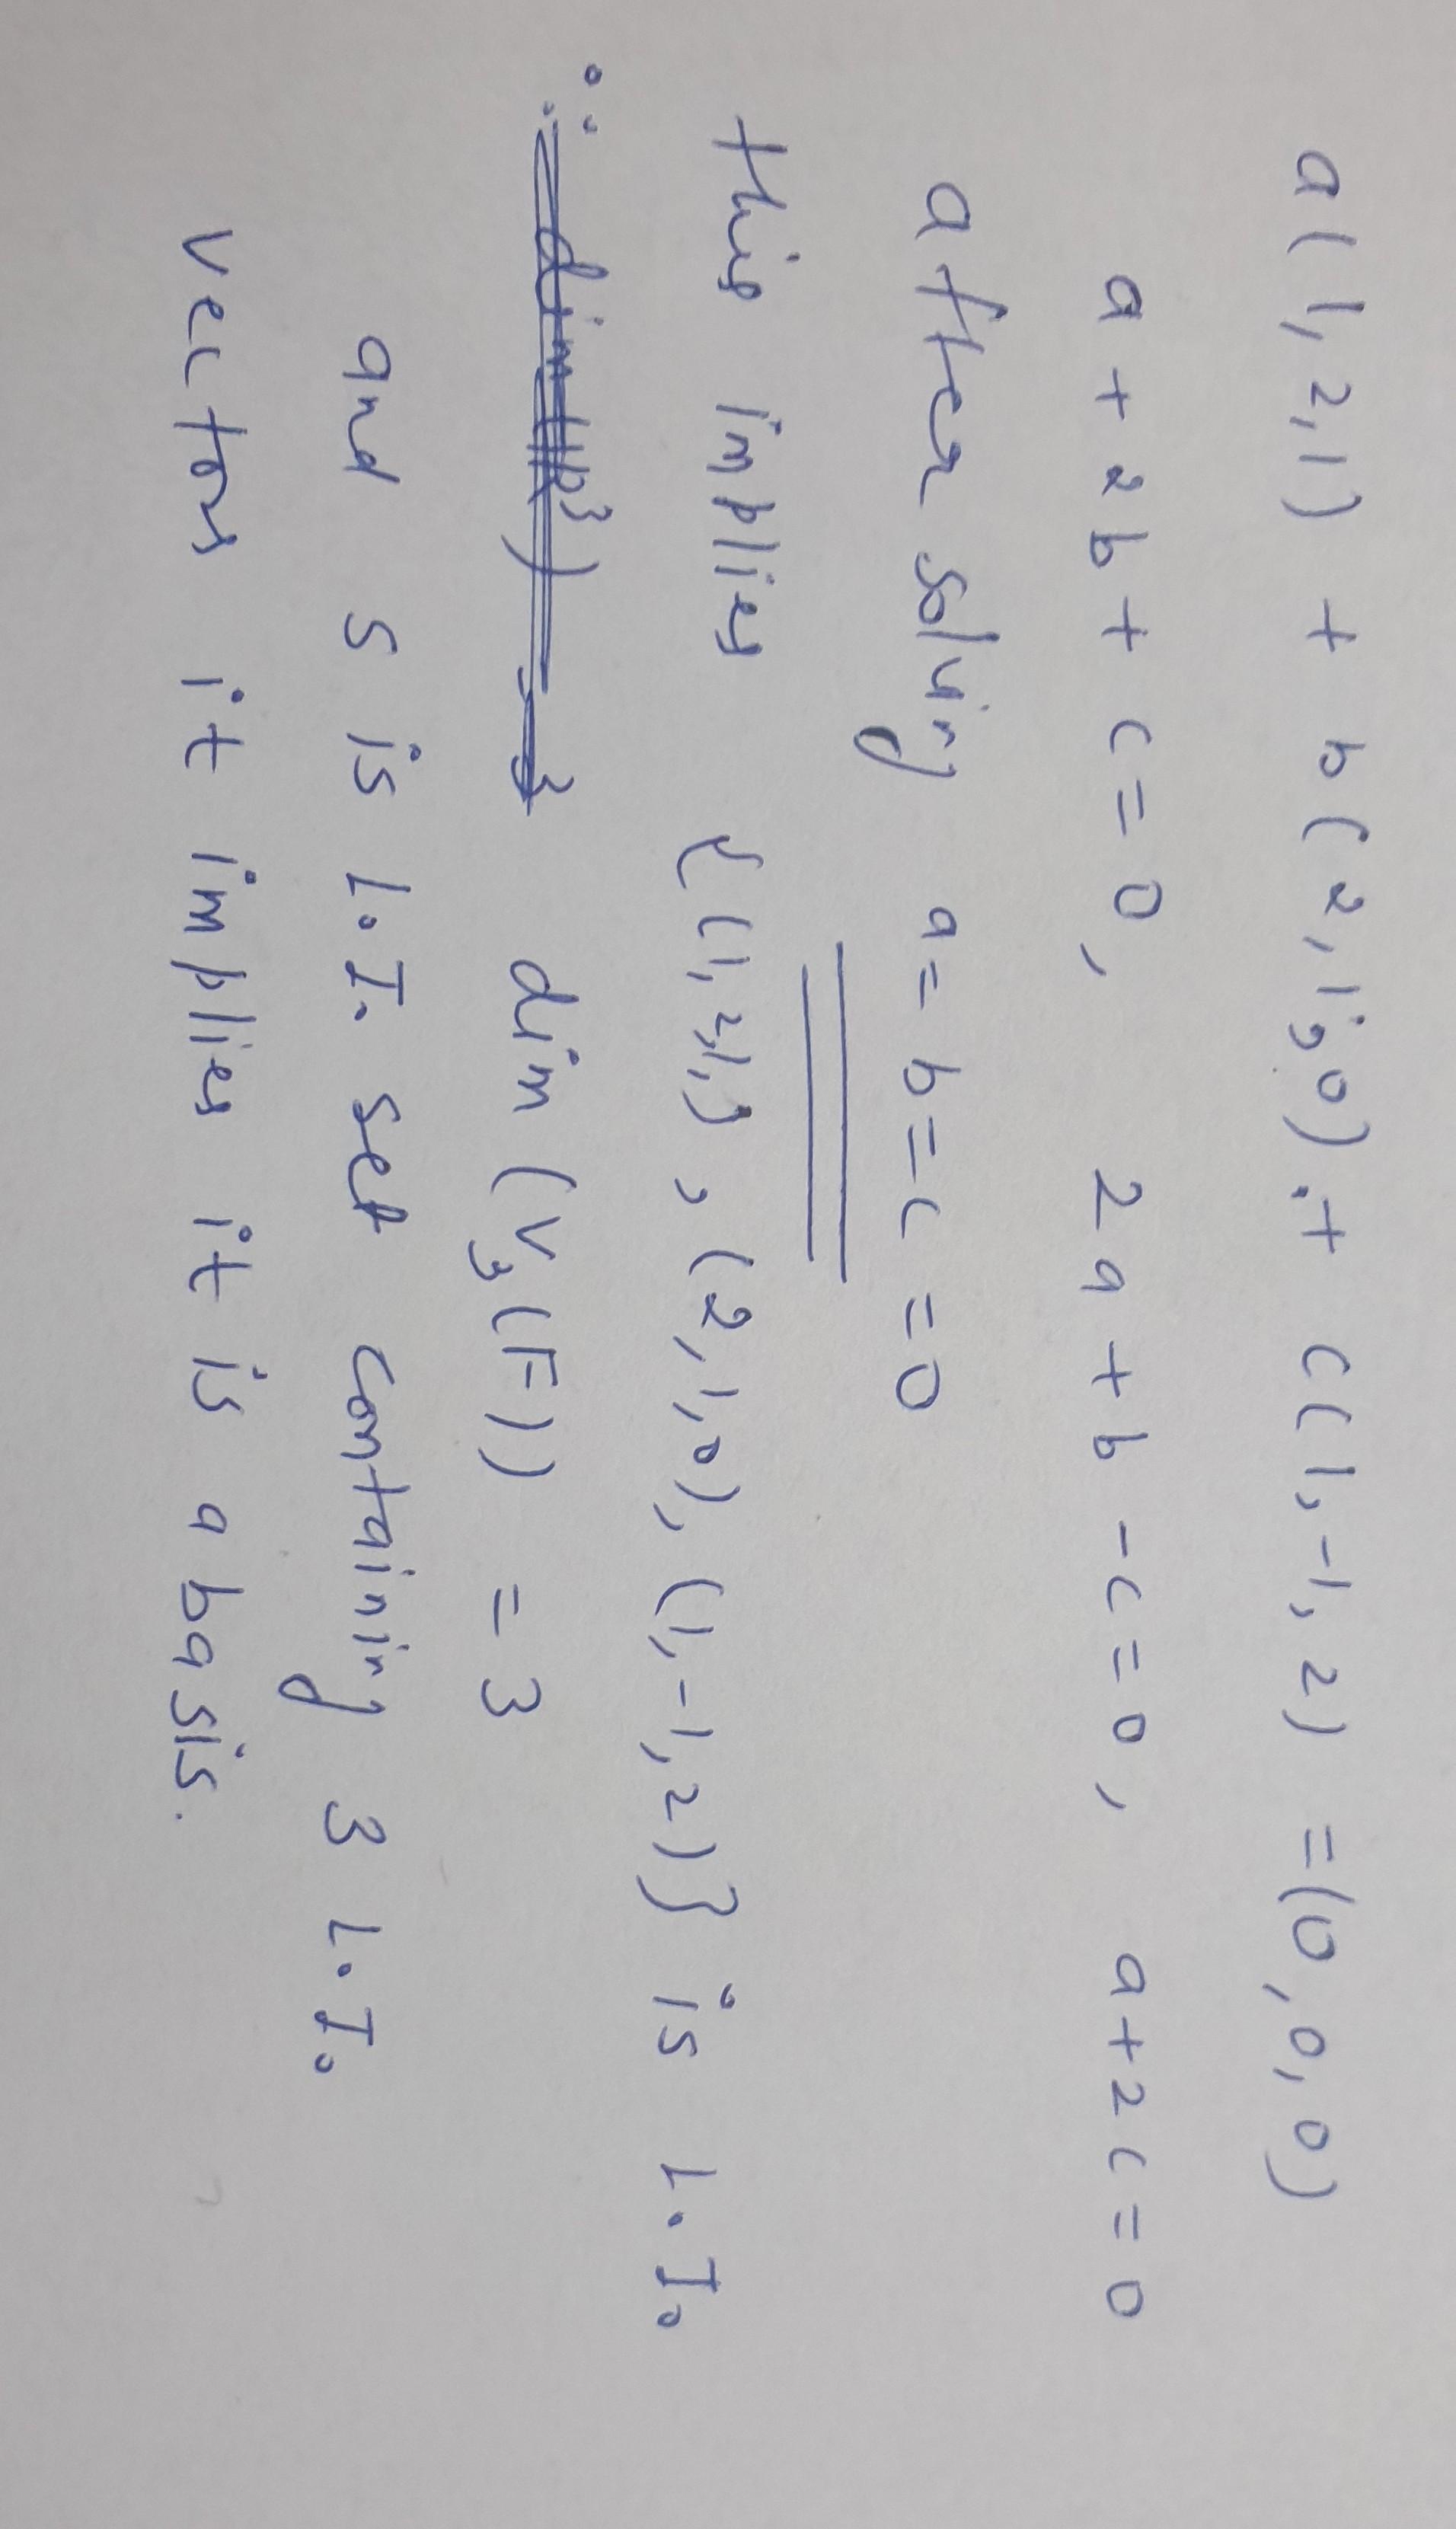 a(1,2,1) + b(2,1,0) + c(1,-1,2) = (0,0,0)
a+2b+c=0, 2a+b-c=0, a+2c=0
after solving a=b=c=0
this implies {(1,2,1), (2,1,0), (1,-1,2)} is L.I.
∵ dim(V₃(F)) = 3
and S is L.I. set containing 3 L.I.
vectors it implies it is a basis.